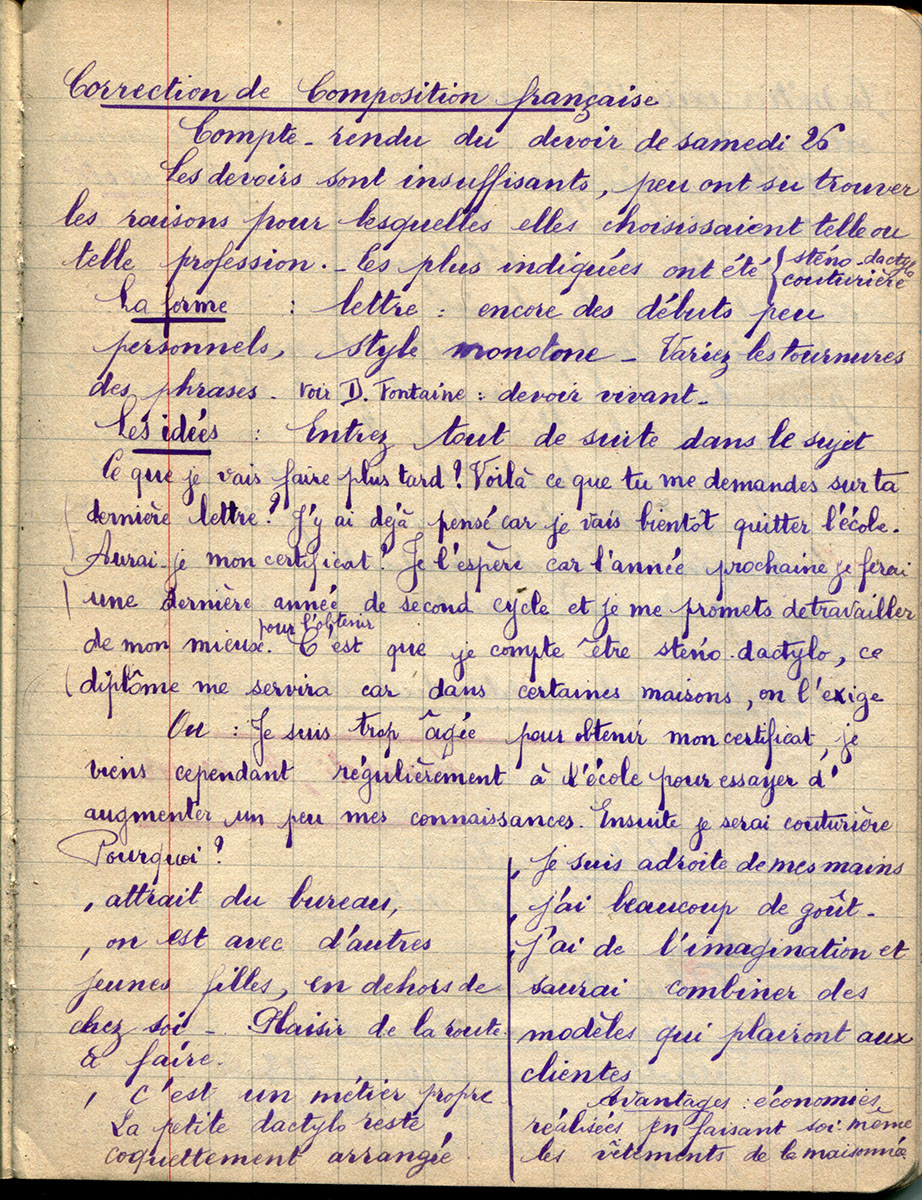 Correction de Composition française
Compte-rendu du devoir de samedi 26
Les devoirs sont insuffisants, peu ont su trouver
les raisons pour lesquelles elles choisissaient telle ou
telle profession. - les plus indiquées ont été { sténo-dactylo
couturière
La forme : lettre : encore des débuts peu
personnels, style monotone - Variez les tournures
des phrases - Voir D. Fontaine : devoir vivant -
Les idées : Entrez tout de suite dans le sujet
Ce que je vais faire plus tard ? Voilà ce que tu me demandes sur ta
dernière lettre ? J'y ai déjà pensé car je vais bientôt quitter l'école.
Aurai-je mon certificat ? Je l'espère car l'année prochaine je ferai
une dernière année de second cycle et je me promets de travailler
pour l'obtenir
de mon mieux. C'est que je compte être sténo-dactylo, ce
diplôme me servira car dans certaines maisons, on l'exige
Ou : Je suis trop âgée pour obtenir mon certificat, je
viens cependant régulièrement à l'école pour essayer d'
augmenter un peu mes connaissances. Ensuite je serai couturière
Pourquoi ?
, attrait du bureau,
, on est avec d'autres
jeunes filles, en dehors de
chez soi - Plaisir de la route
à faire.
, c'est un métier propre
La petite dactylo reste
coquettement arrangée
, je suis adroite de mes mains
, j'ai beaucoup de goût -
, j'ai de l'imagination et
saurai combiner des
modèles qui plairont aux
clientes
Avantages : économies
réalisées en faisant soi-même
les vêtements de la maisonnée